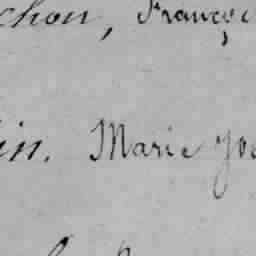 chon, Françoi
in. Marie Jos